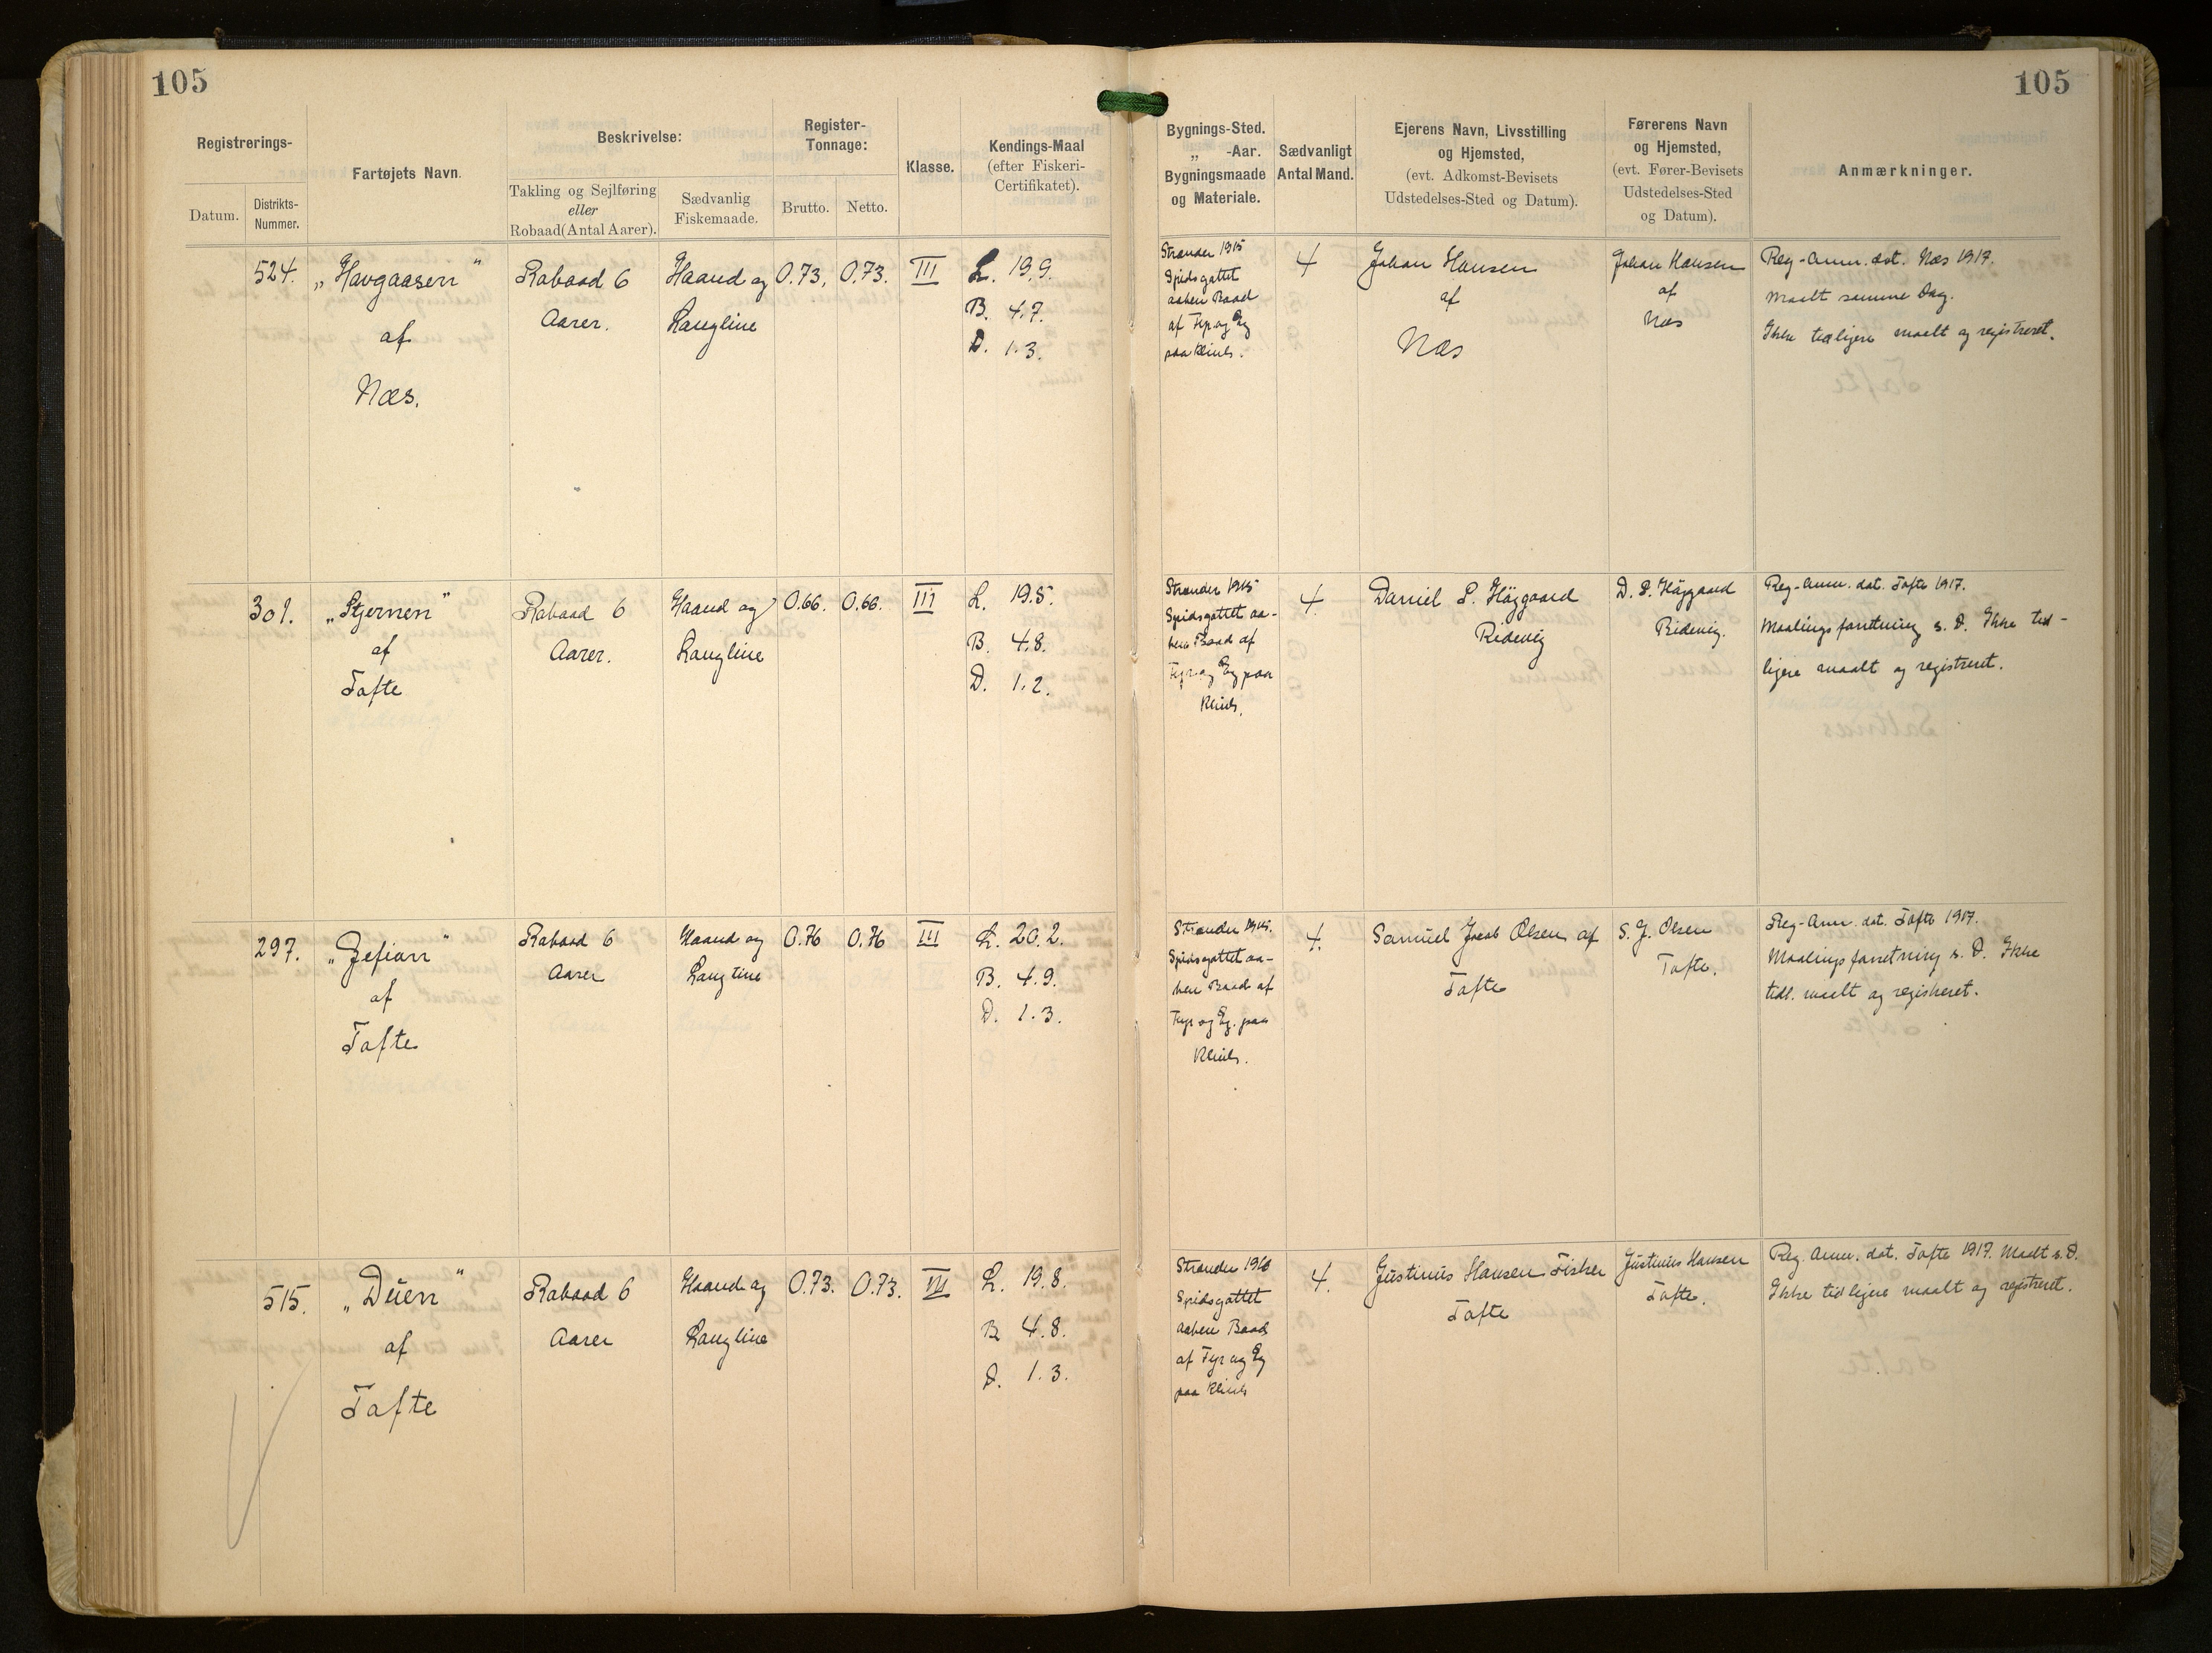 105
105
Registrerings-
Datum.
Distrikts-
Nummer.
Fartøjets Navn.
Beskrivelse:
Takling og Sejlføring
eller
Robaad (Antal Aarer).
Sædvanlig
Fiskemaade.
Register-
Tonnage:
Brutto.
Netto.
Klasse.
Kendings-Maal
(efter Fiskeri-
Certifikatet).
Bygnings-Sted.
„ -Aar.
Bygningsmaade
og Materiale.
Sædvanligt
Antal Mand.
Ejerens Navn, Livsstilling
og Hjemsted,
(evt. Adkomst-Bevisets
Udstedelses-Sted og Datum).
Førerens Navn
og Hjemsted,
(evt. Fører-Bevisets
Udstedelses-Sted
og Datum).
Anmærkninger.
524.
„Havgaasen"
af
Næs.
Robaad 6
Aarer.
Haand og
Langline
0.73.
0.73.
III
L. 19.9.
B. 4.7.
D. 1.3.
Strander 1915
Spidsgattet
aaben Baad
af Fyr og Eg
paa Klink.
4
Johan Hansen
af
Næs
Johan Hansen
af
Næs
Reg-Anm. dat. Næs 1917.
Maalt samme Dag.
Ikke tidligere maalt og registreret.
301.
„Stjernen"
af
Tofte
Robaad 6
Aarer.
Haand og
Langline
0.66.
0.66.
III
L. 19.5.
B. 4.8.
D. 1.2.
Strander 1915
Spidsgattet aa-
ben Baad af
Fyr og Eg paa
Klink.
4.
Daniel P. Höjgaard
Ridevig
D. P. Höjgaard
Ridevig.
Reg-Anm. dat. Tofte 1917.
Maalingsforretning s. D. Ikke tid-
ligere maalt og registreret.
297.
„Gefion"
af
Tofte
Robaad 6
Aarer
Haand og
Langline
0.76
0.76
III
L. 20.2.
B. 4.9.
D. 1.3.
Strander 1915.
Spidsgattet aa-
ben Baad af
Fyr og Eg. paa
Klink.
4.
Samuel Jacob Olsen af
Tofte
S. J. Olsen
Tofte.
Reg-Anm. dat. Tofte 1917.
Maalingsforretning s. D. Ikke
tidl. maalt og registreret.
515.
„Duen"
af
Tofte
Robaad 6
Aarer
Haand og
Langline
0.73.
0.73.
III
L. 19.8.
B 4.8.
D. 1.3.
Strander 1916
Spidsgattet
aaben Baad
af Fyr og Eg
paa Klink
4.
Justinus Hansen Fisker
Tofte
Justinus Hansen
Tofte.
Reg. Anm. dat. Tofte 1917. Maalt s. D.
Ikke tidligere maalt og registreret.